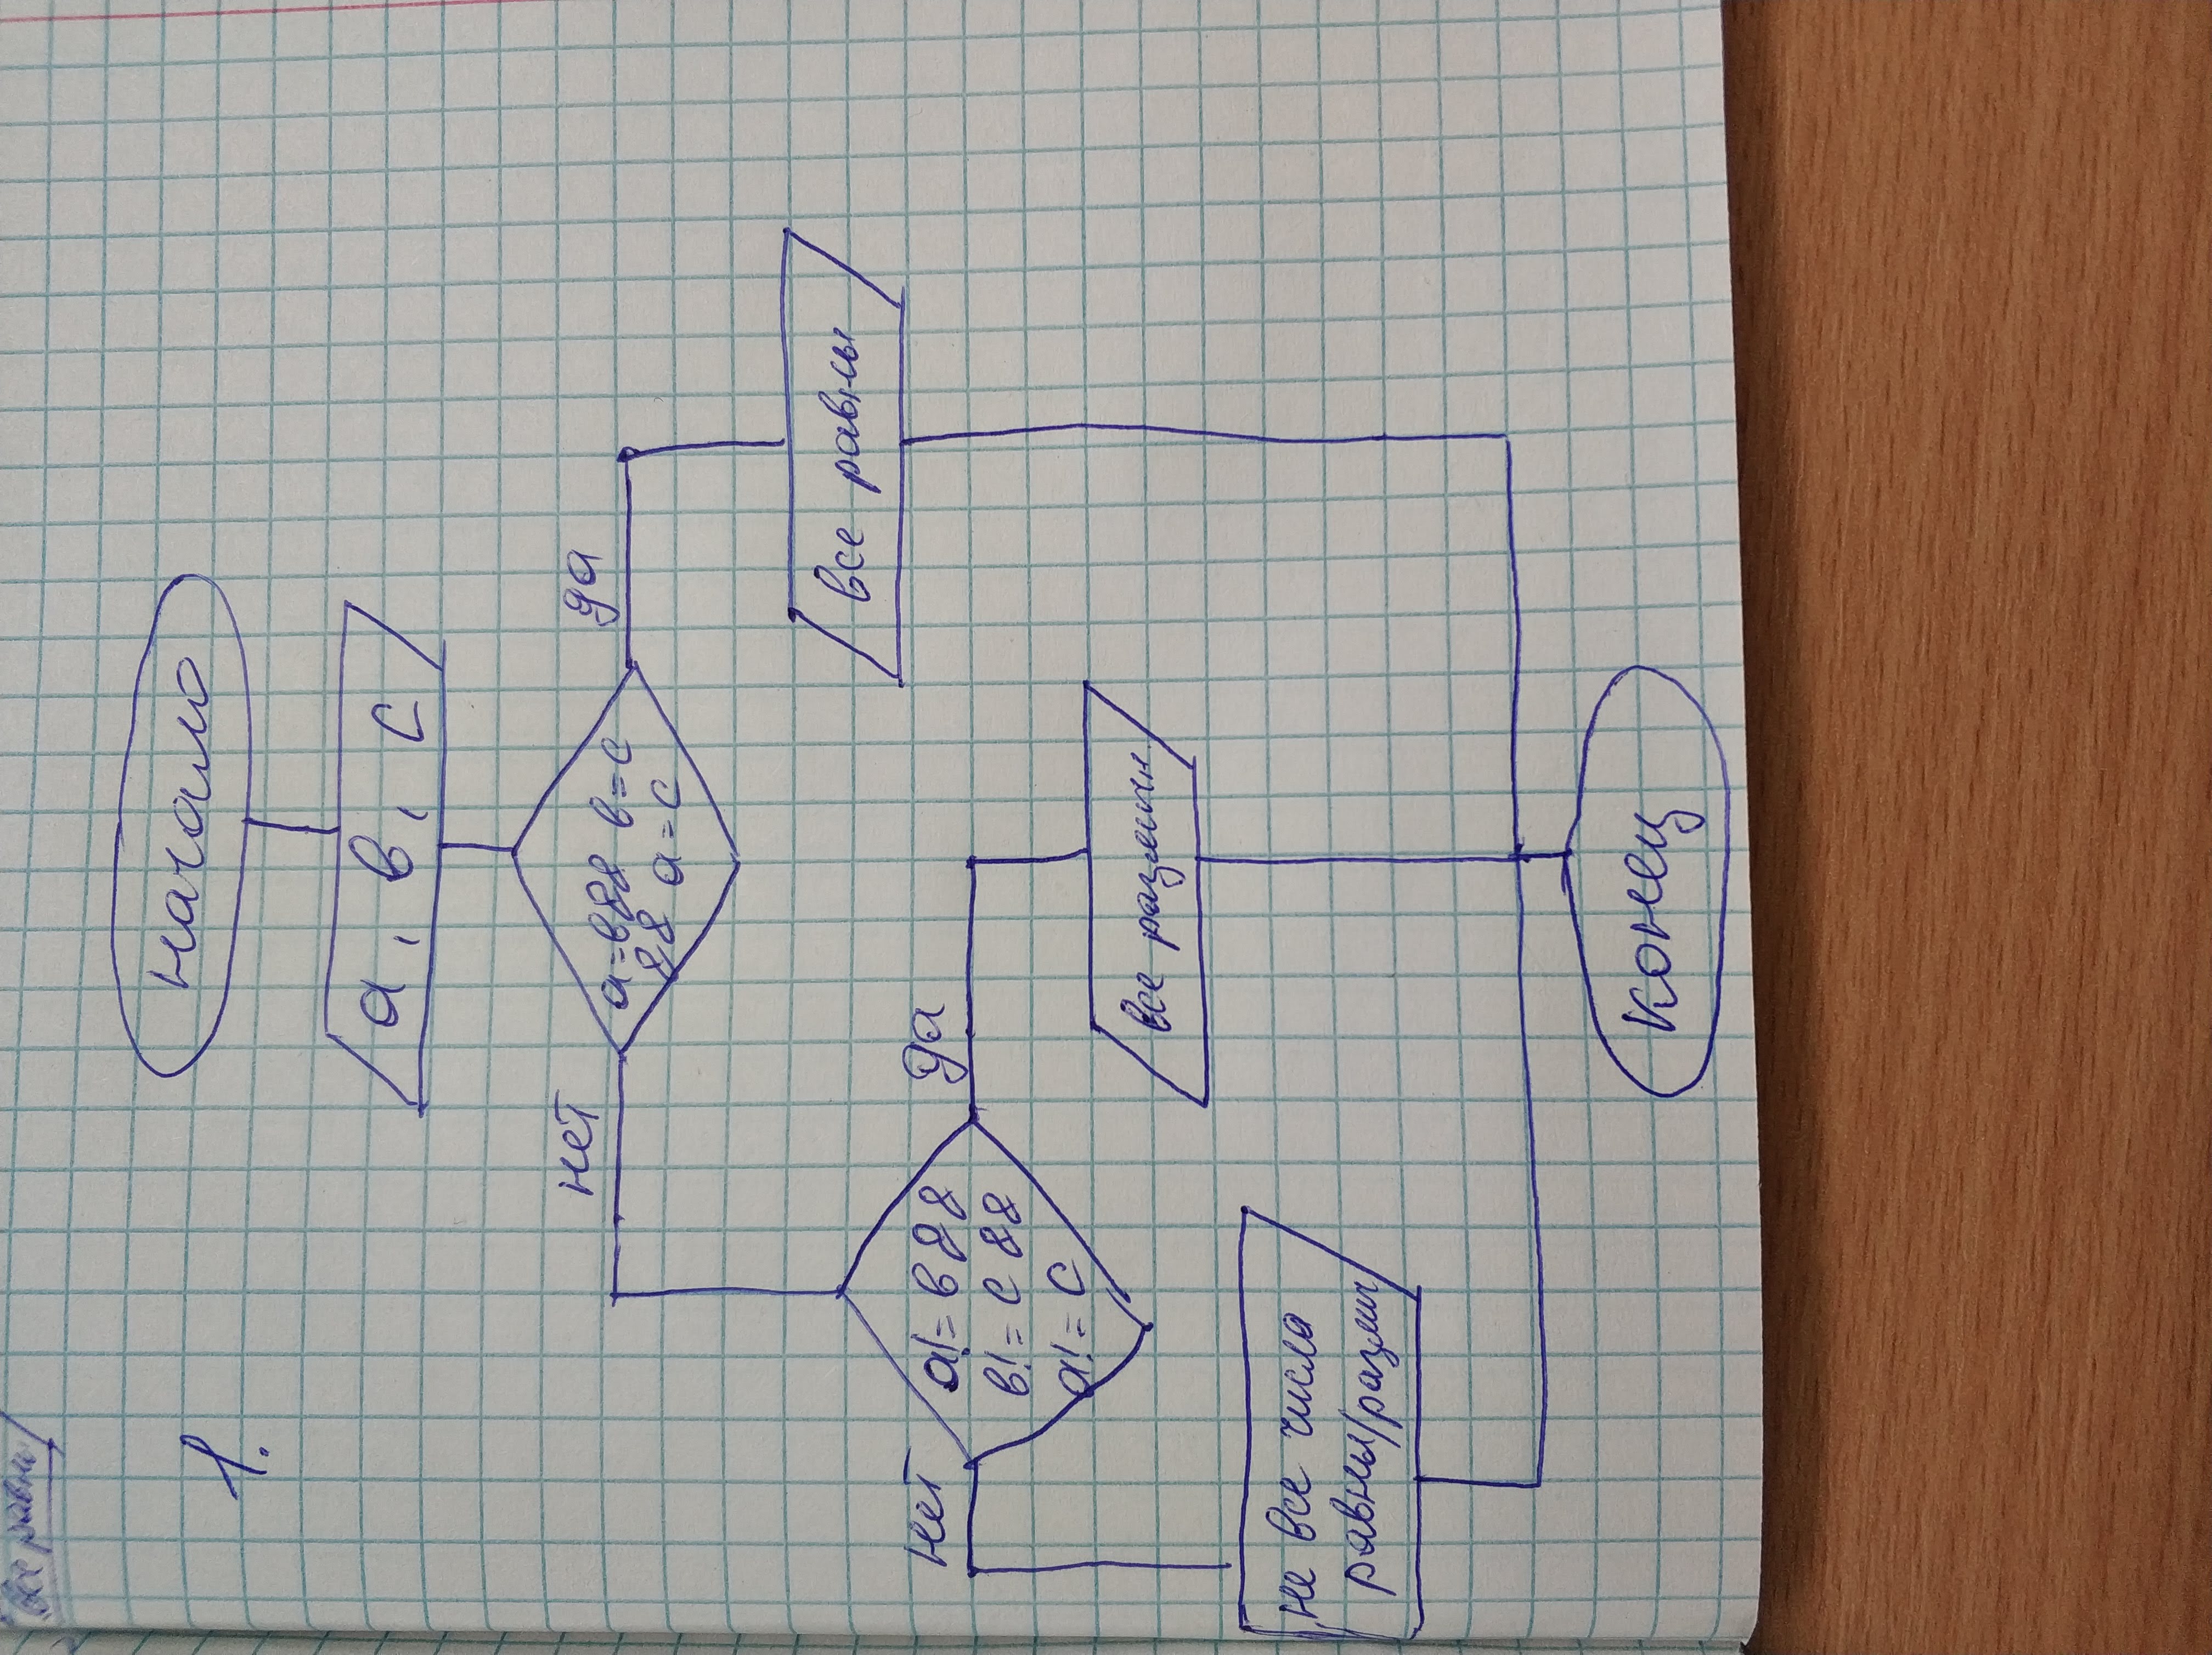 все равны
1.
начало
а, в, с
нет
да
а=в&& в=с
&& а=с
все равны
нет
да
а!=в&&
в!=с&&
а!=с
все различн.
не все числа
равны/различ
конец